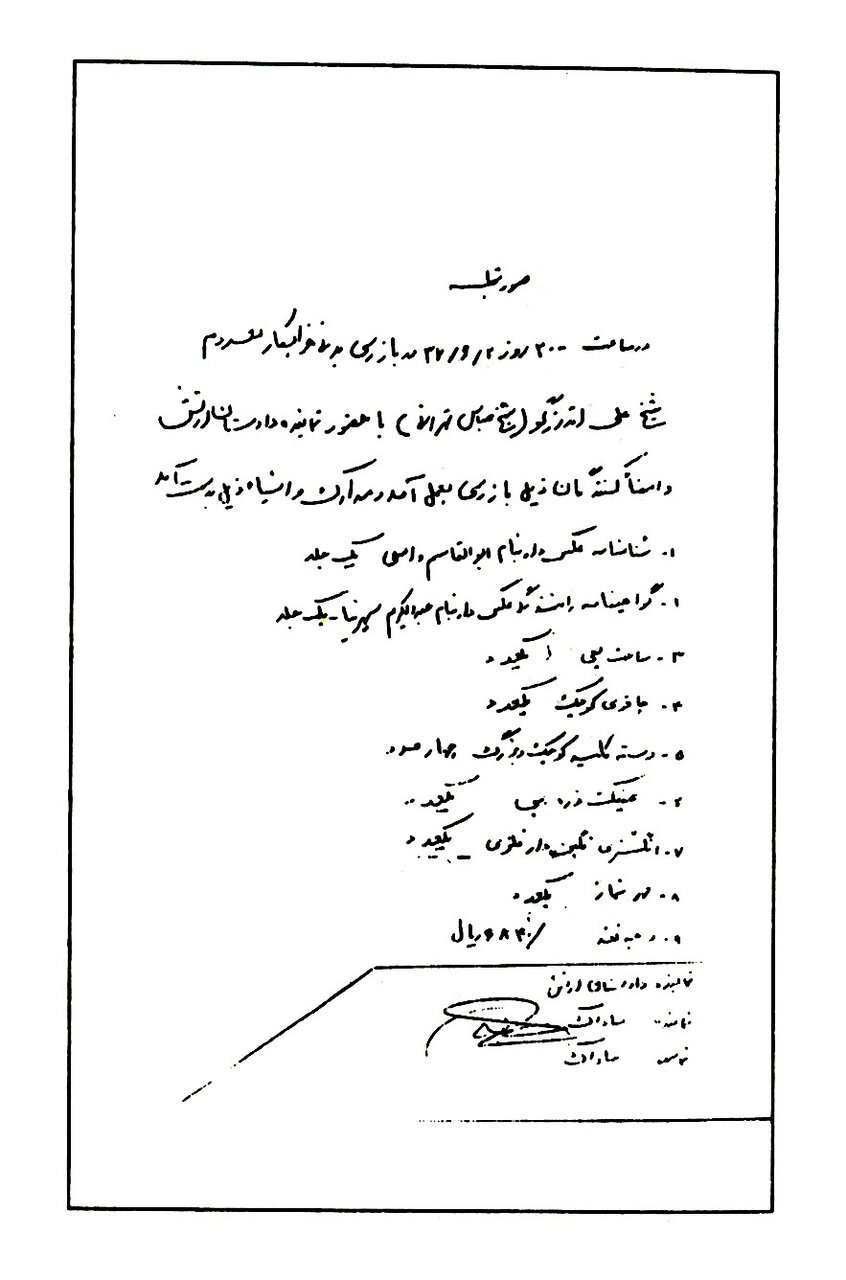 صورتجلسه
در ساعت ۲۰۰۰ روز ۳۷/۶/۲ در بازرسی بدنی خرابکار معدوم
شیخ علی اندرزگو (شیخ عباس تهرانی) با حضور نماینده دادستان ارتش
و امضاء کنندگان ذیل بازرسی بعمل آمد و مدارک و اشیاء ذیل بدست آمد
۱- شناسنامه عکس دار بنام ابوالقاسم واسعی یک جلد
۱- گواهینامه رانندگی عکس دار بنام عبدالکریم سپهرنیا - یک جلد
۳- ساعت مچی یکعدد
۴- چاقوی کوچک یکعدد
۵- دسته کلید کوچک و بزرگ چهار عدد
۶- عینک ذره بینی یکعدد
۷- انگشتری نگین دار فلزی یکعدد
۸- مهر نماز یکعدد
۹- وجه نقد ۶۸۳۰/ ریال
نماینده دادستان ارتش
نماینده ساواک
نماینده ساواک